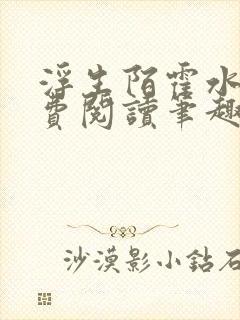 浮生陌霍水
費閱讀筆趣
沙漠影小鉆石